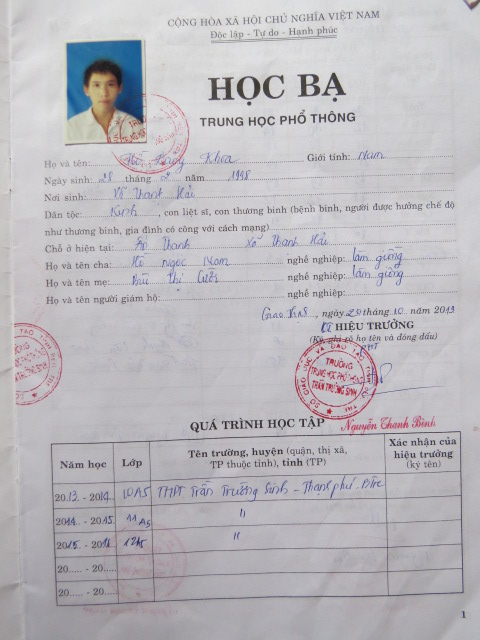 CỘNG HÒA XÃ HỘI CHỦ NGHĨA VIỆT NAM
Độc lập - Tự do - Hạnh phúc
HỌC BẠ
TRUNG HỌC PHỔ THÔNG
Họ và tên: Khoa Giới tính: Nam
Ngày sinh: 28 tháng 2 năm 1998
Nơi sinh: Xã Thạnh Hải
Dân tộc: Kinh, con liệt sĩ, con thương binh (bệnh binh, người được hưởng chế độ
như thương binh, gia đình có công với cách mạng)
Chỗ ở hiện tại: Ấp Thạnh xã Thạnh Hải
Họ và tên cha: Hồ Ngọc Nam nghề nghiệp: làm giồng
Họ và tên mẹ: Bùi Thị nghề nghiệp: làm giồng
Họ và tên người giám hộ: nghề nghiệp:
Giao Thạnh, ngày 20 tháng 10 năm 2013
HIỆU TRƯỞNG
(Ký, ghi rõ họ tên và đóng dấu)
SỞ GIÁO DỤC VÀ ĐÀO TẠO
TRƯỜNG
TRUNG HỌC PHỔ THÔNG
TRẦN TRƯỜNG SINH
QUÁ TRÌNH HỌC TẬP
Nguyễn Thanh Bình
Năm học Lớp Tên trường, huyện (quận, thị xã, TP thuộc tỉnh), tỉnh (TP) Xác nhận của hiệu trưởng (ký tên)
2013 - 2014 10A5 THPT Trần Trường Sinh - Thạnh phú - Btre
2014 - 2015 11A5 "
2015 - 2016 12A5 "
20..... - 20.....
20..... - 20.....
1